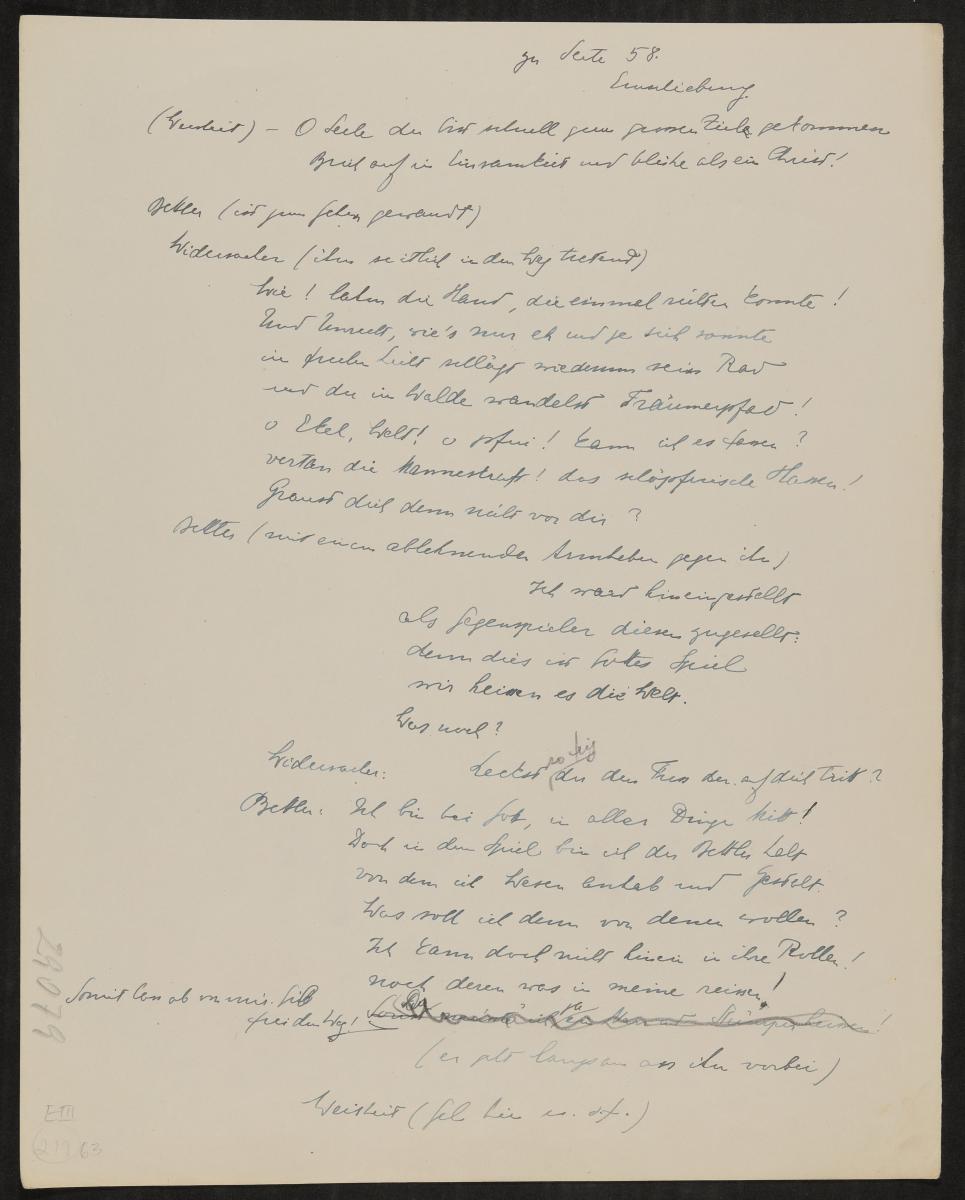 zu Seite 58.
Einschiebung.
(Weisheit) – O Seele du bist schnell zum grossen Ziele gekommen
Brich auf in Einsamkeit und bleibe als ein Christ!
Bettler (ist zum Gehen gewandt)
Widersacher (ihm seitlich in den Weg tretend)
Wie! lahm die Hand, die einmal richten konnte!
Und Unrecht, wie's nur eh und je sich sonnte
in frechem Licht schlägt wiederum sein Rad
und du im Walde wandelst Träumerpfad!
o Ekel, Welt! o pfui! kann ich es fassen?
vertan die Manneskraft! das schöpferische Hassen!
Graust dich denn nicht vor dir?
Bettler (mit einem ablehnenden Armheben gegen ihn)
Ich ward hineingestellt
als Gegenspieler diesen zugesellt:
denn dies ist Gottes Spiel
wir heissen es die Welt.
Was noch?
Widersacher: Leckst du den Fuss der auf dich tritt?
Bettler: Ich bin bei Gott, in aller Dinge Mitt!
Doch in dem Spiel bin ich der Bettler halt
von dem ich Wesen anhab und Gestalt.
Was soll ich denn von denen wollen?
Ich kann doch nicht hinein in ihre Rollen!
noch deren was in meine reissen!
Somit lass ab von mir. Gib
frei den Weg!
(er geht langsam an ihm vorbei)
Weisheit (Geh hin u. s. f.)
29079
E III
219 63